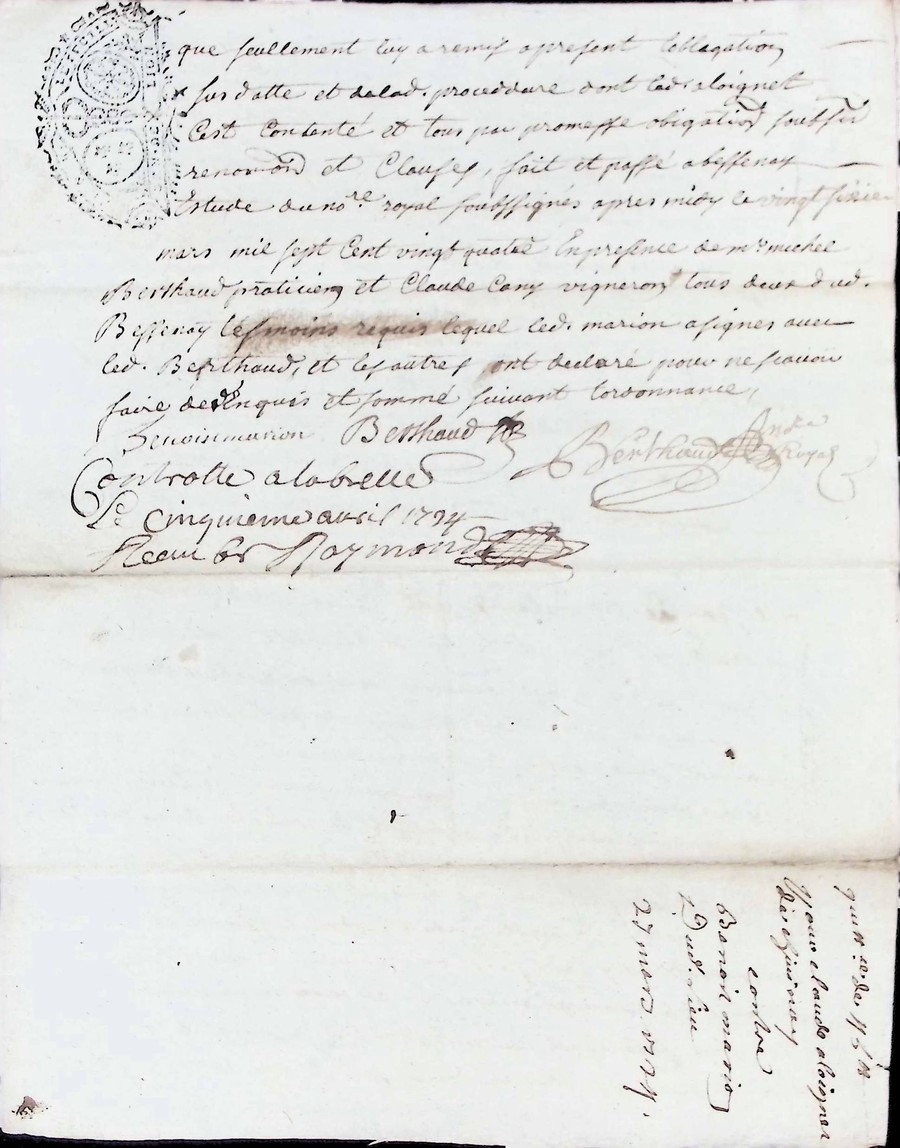 que seullement luy a remis apresent lobligation
susdatte et delad. proceddure dont led. aloignet
Cest Contanté et tous par promesse obligation soubson
renonon et Clauses, fait et passé a bessenay
Estude du nore royal soubssignés apres midy le vingt
mars mil sept Cent vingt quatre En presence de mre michel
Berthaud praticien et Claude Cany vigneron tous deux dud.
Bessenay tesmoins requis lequel led. marion a signes avec
led. Berthaud, et les autres ont declaré pour ne scavoir
faire de ce Enquis et sommé suivant lordonnance,
Benoist marion Berthaud
Berthaud nore Royal
Controlle a labrelle
Le Cinquieme avril 1724
Receu 6s Raymond
quittce de
pour claude aloignet
de bessenay
contre
Benoit marion
Dud. lieu
mars 1724.